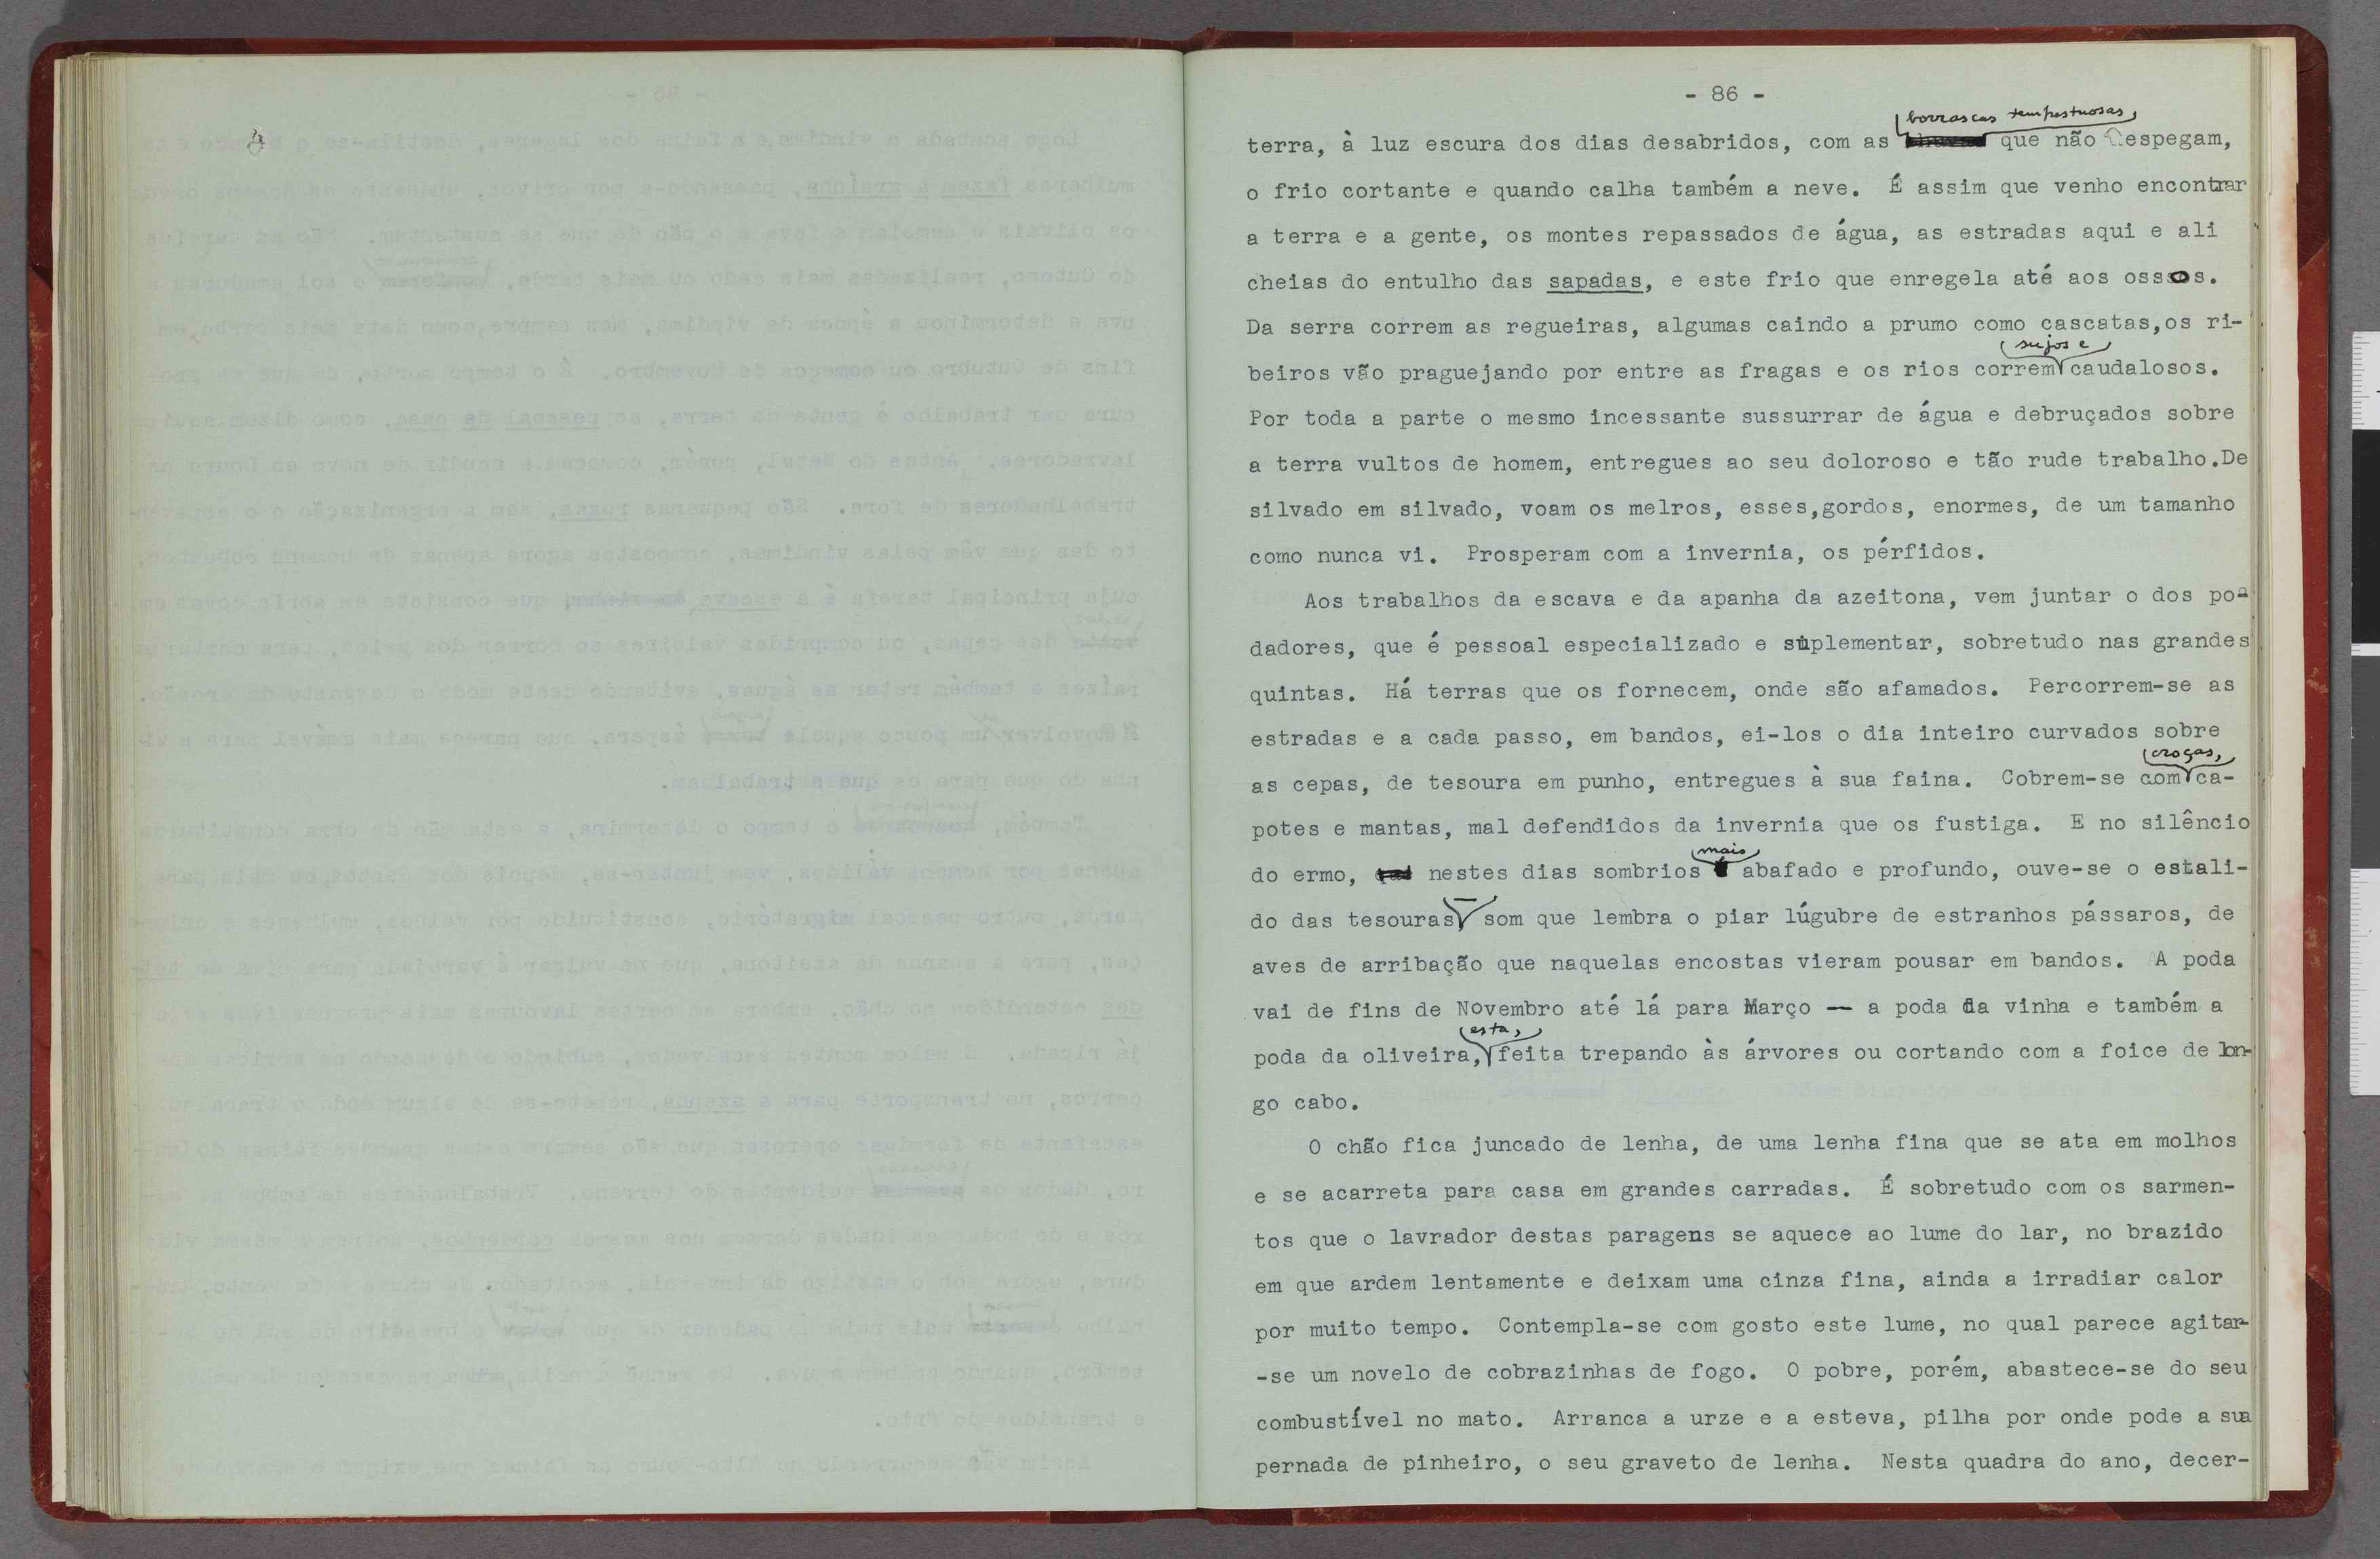 - 86 -
terra, à luz escura dos dias desabridos, com as borrascas tempestuosas que não despegam,
o frio cortante e quando calha também a neve. É assim que venho encontrar
a terra e a gente, os montes repassados de água, as estradas aqui e ali
cheias do entulho das sapadas, e este frio que enregela até aos ossos.
Da serra correm as regueiras, algumas caindo a prumo como cascatas,os ri-
beiros vão praguejando por entre as fragas e os rios correm sujos e caudalosos.
Por toda a parte o mesmo incessante sussurrar de água e debruçados sobre
a terra vultos de homem, entregues ao seu doloroso e tão rude trabalho.De
silvado em silvado, voam os melros, esses,gordos, enormes, de um tamanho
como nunca vi. Prosperam com a invernia, os pérfidos.
Aos trabalhos da escava e da apanha da azeitona, vem juntar o dos po-
dadores, que é pessoal especializado e suplementar, sobretudo nas grandes
quintas. Há terras que os fornecem, onde são afamados. Percorrem-se as
estradas e a cada passo, em bandos, ei-los o dia inteiro curvados sobre
as cepas, de tesoura em punho, entregues à sua faina. Cobrem-se com croças, ca-
potes e mantas, mal defendidos da invernia que os fustiga. E no silêncio
do ermo, nestes dias sombrios mais abafado e profundo, ouve-se o estali-
do das tesouras — som que lembra o piar lúgubre de estranhos pássaros, de
aves de arribação que naquelas encostas vieram pousar em bandos. A poda
vai de fins de Novembro até lá para Março — a poda da vinha e também a
poda da oliveira, esta, feita trepando às árvores ou cortando com a foice de lon-
go cabo.
O chão fica juncado de lenha, de uma lenha fina que se ata em molhos
e se acarreta para casa em grandes carradas. É sobretudo com os sarmen-
tos que o lavrador destas paragens se aquece ao lume do lar, no brazido
em que ardem lentamente e deixam uma cinza fina, ainda a irradiar calor
por muito tempo. Contempla-se com gosto este lume, no qual parece agitar-
-se um novelo de cobrazinhas de fogo. O pobre, porém, abastece-se do seu
combustível no mato. Arranca a urze e a esteva, pilha por onde pode a sua
pernada de pinheiro, o seu graveto de lenha. Nesta quadra do ano, decer-